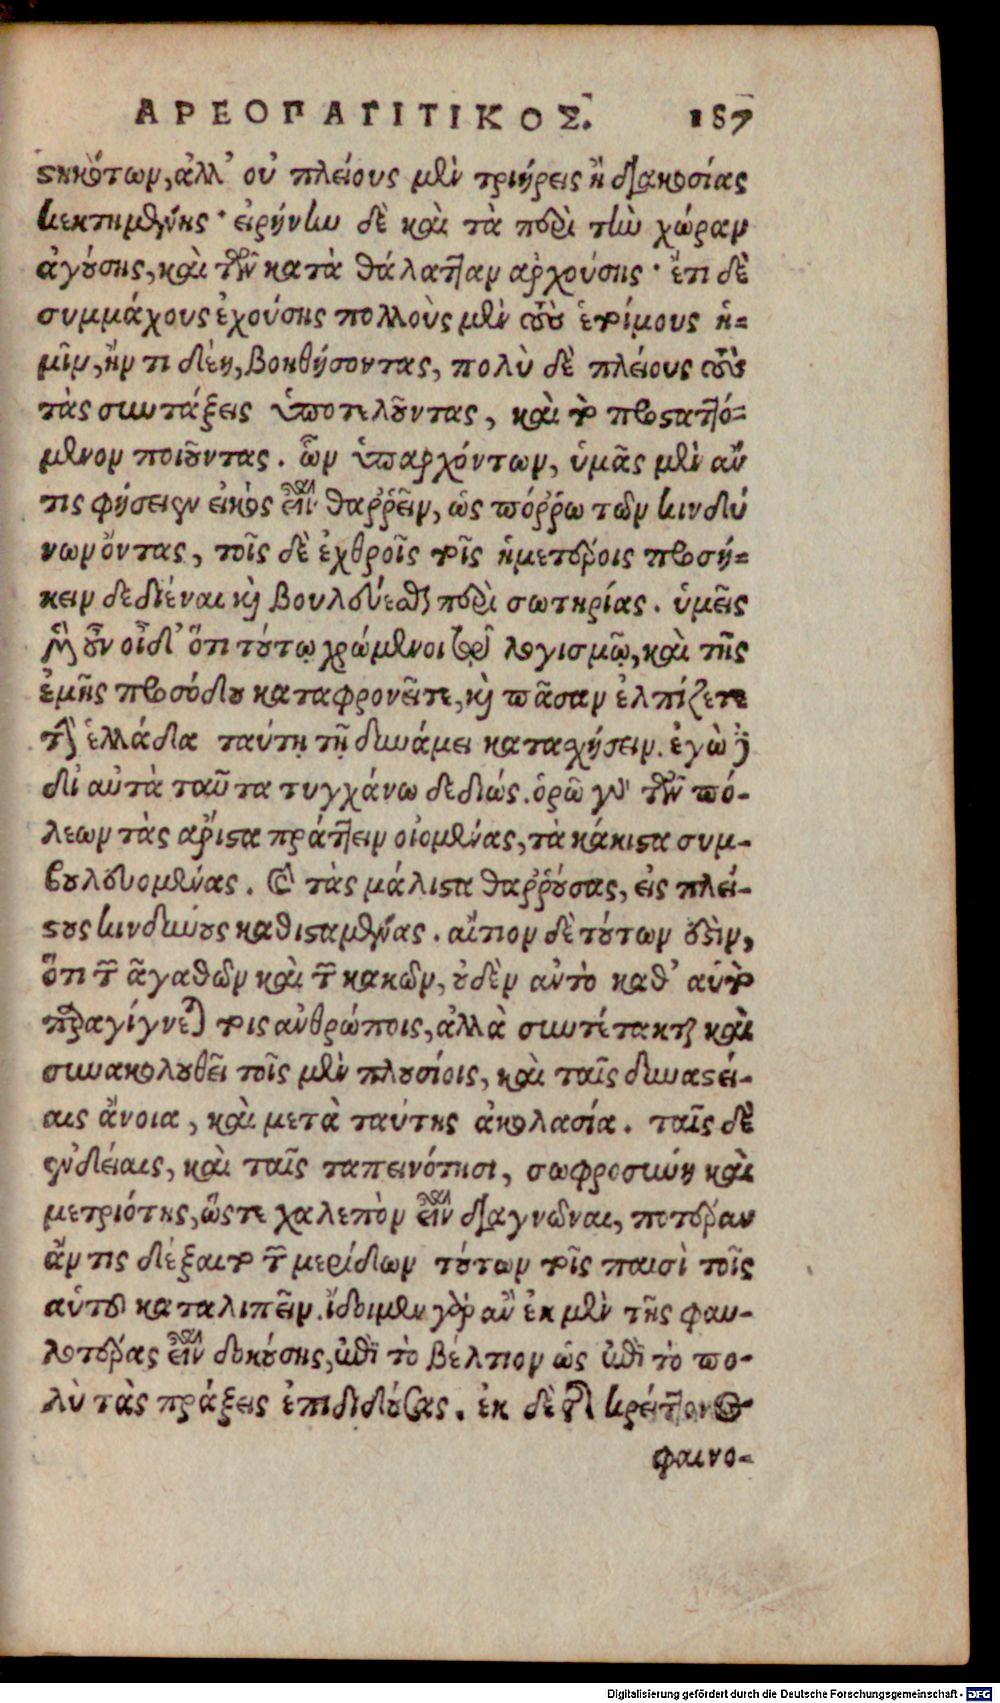 ΑΡΕΟΠΑΓΙΤΙΚΟΣ. 187
στηκότων, ἀλλ' οὐ πλείους μὲν τριήρεις ἢ διακοσίας
κεκτημένης· εἰρήνην δὲ καὶ τὰ περὶ τὴν χώραν
ἀγούσης, καὶ τῶν κατὰ θάλατταν ἀρχούσης· ἔτι δὲ
συμμάχους ἐχούσης πολλοὺς μὲν τοὺς ἑτοίμους ἡ-
μῖν, ἤν τι δέῃ, βοηθήσοντας, πολὺ δὲ πλείους τοὺς
τὰς συντάξεις ὑποτελοῦντας, καὶ τὸ προσταττό-
μενον ποιοῦντας. ὧν ὑπαρχόντων, ὑμᾶς μὲν ἄν
τις φήσειεν εἰκὸς εἶναι θαῤῥεῖν, ὡς πόῤῥω τῶν κινδύ
νων ὄντας, τοῖς δὲ ἐχθροῖς τοῖς ἡμετέροις προσή-
κειν δεδιέναι καὶ βουλεύεσθαι περὶ σωτηρίας. ὑμεῖς
μὲν οὖν οἶδ' ὅτι τούτῳ χρώμενοι τῷ λογισμῷ, καὶ τῆς
ἐμῆς προσόδου καταφρονεῖτε, καὶ πᾶσαν ἐλπίζετε
τὴν ἑλλάδα ταύτῃ τῇ δυνάμει κατασχήσειν. ἐγὼ δὲ
δι' αὐτὰ ταῦτα τυγχάνω δεδιώς. ὁρῶ γὰρ τῶν πό-
λεων τὰς ἄριστα πράττειν οἰομένας, τὰ κάκιστα συμ-
βουλευομένας. καὶ τὰς μάλιστα θαῤῥούσας, εἰς πλεί-
στους κινδύνους καθισταμένας. αἴτιον δὲ τούτων ἐστὶν,
ὅτι τῶν ἀγαθῶν καὶ τῶν κακῶν, οὐδὲν αὐτὸ καθ' αὑτὸ
παραγίγνεται τοῖς ἀνθρώποις, ἀλλὰ συντέτακται καὶ
συνακολουθεῖ τοῖς μὲν πλουσίοις, καὶ ταῖς δυναστεί-
αις ἄνοια, καὶ μετὰ ταύτης ἀκολασία. ταῖς δὲ
ἐνδείαις, καὶ ταῖς ταπεινότησι, σωφροσύνη καὶ
μετριότης, ὥστε χαλεπὸν εἶναι διαγνῶναι, ποτέραν
ἄν τις δέξαιτο τῶν μερίδων τούτων τοῖς παισὶ τοῖς
αὑτοῦ καταλιπεῖν. ἴδοιμεν γὰρ ἂν ἐκ μὲν τῆς φαυ-
λοτέρας εἶναι δοκούσης, ἐπὶ τὸ βέλτιον ὡς ἐπὶ τὸ πο-
λὺ τὰς πράξεις ἐπιδιδούσας. ἐκ δὲ τῆς κρείττονος
φαινο-
Digitalisierung gefördert durch die Deutsche Forschungsgemeinschaft - DFG